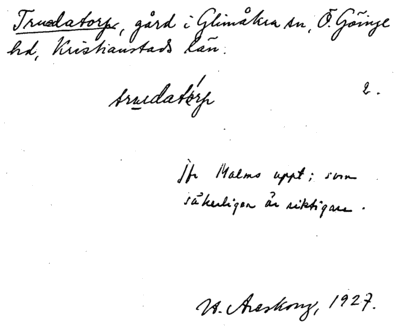 Truedatorp, gård i Glimåkra sn, Ö. Göinge
hd, Kristianstads län.
truedatórp 2.
jfr Malms uppt; som
säkerligen är riktigare.
W. Areskoug, 1927.